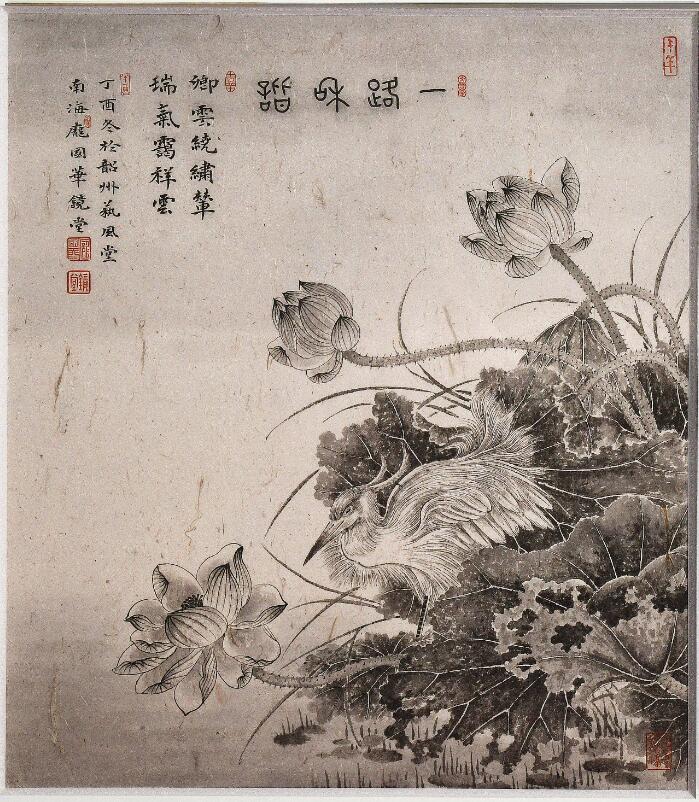 一路和諧
卿雲繞繡輦
瑞氣靄祥雲
丁酉冬於韶州蓺風堂
南海龐國華鏡堂